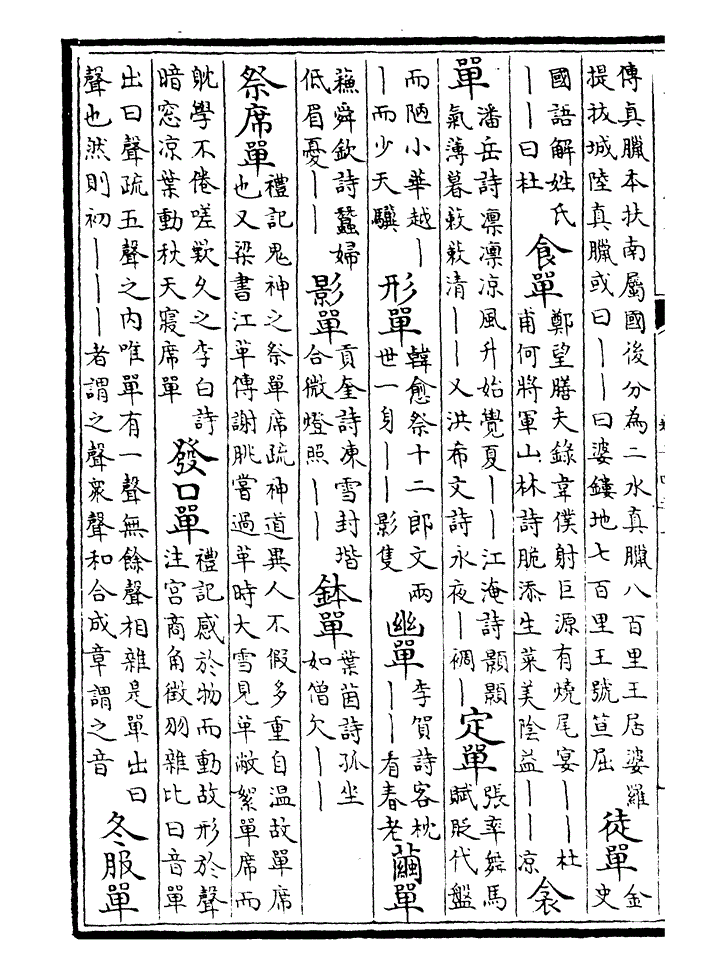 傳真臘本扶南屬國後分為二水真臘八百里王居婆羅
提拔城陸真臘或曰——曰婆鏤地七百里王號笪屈
徒單
金
史
國語解姓氏
——曰杜
食單
鄭望膳夫錄韋僕射巨源有燒尾宴——杜
甫何將軍山林詩脆添生菜美陰益——凉
衾
單
潘岳詩凛凛凉風升始覺夏——江淹詩顥顥
氣薄暮簌簌清——又洪希文詩永夜—裯—
定單
張率舞馬
賦貶代盤
而陋小華越—
—而少天驥
形單
韓愈祭十二郎文兩
世一身——影隻
幽單
李賀詩客枕
——看春老
繭單
蘇舜欽詩蠶婦
低眉憂——
影單
貢奎詩凍雪封堦
合微燈照——
鉢單
葉茵詩孤坐
如僧欠——
祭席單
禮記鬼神之祭單席疏神道異人不假多重自温故單席
也又梁書江革傳謝朓嘗過革時大雪見革敝絮單席而
躭學不倦嗟歎久之李白詩
暗窓凉葉動秋天寢席單
發口單
禮記感於物而動故形於聲
注宫商角徵羽雜比曰音單
出曰聲疏五聲之内唯單有一聲無餘聲相雜是單出曰
聲也然則初———者謂之聲衆聲和合成章謂之音
冬服單